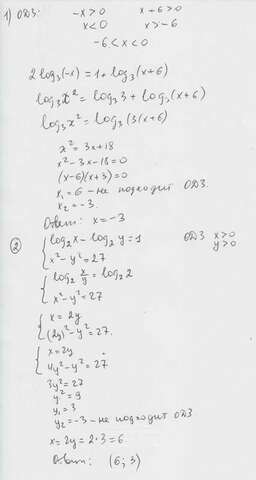 1) ОДЗ: -x>0 x+6>0
x<0 x>-6
-6<x<0
2log₃(-x)=1+log₃(x+6)
log₃x²=log₃3+log₃(x+6)
log₃x²=log₃(3(x+6))
x²=3x+18
x²-3x-18=0
(x-6)(x+3)=0
x₁=6 - не подходит ОДЗ.
x₂=-3.
Ответ: x=-3
② { log₂x-log₂y=1 ОДЗ x>0
x²-y²=27 y>0
{ log₂ x/y = log₂2
x²-y²=27
{ x=2y
(2y)²-y²=27.
{ x=2y
4y²-y²=27
3y²=27
y²=9
y₁=3
y₂=-3 - не подходит ОДЗ
x=2y=2·3=6
Ответ: (6;3)